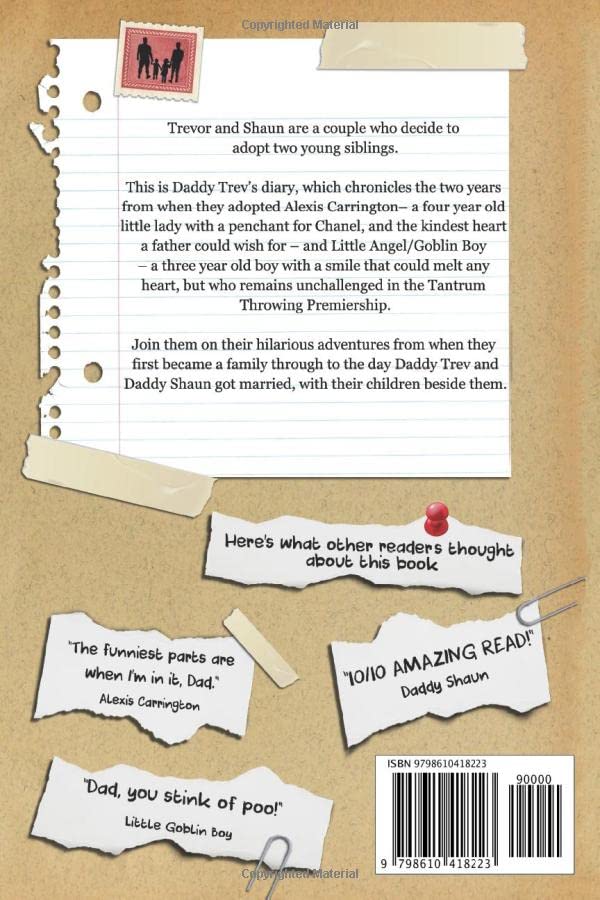 Copyrighted Material
Trevor and Shaun are a couple who decide to
adopt two young siblings.
This is Daddy Trev's diary, which chronicles the two years
from when they adopted Alexis Carrington– a four year old
little lady with a penchant for Chanel, and the kindest heart
a father could wish for – and Little Angel/Goblin Boy
– a three year old boy with a smile that could melt any
heart, but who remains unchallenged in the Tantrum
Throwing Premiership.
Join them on their hilarious adventures from when they
first became a family through to the day Daddy Trev and
Daddy Shaun got married, with their children beside them.
Here's what other readers thought
about this book
"The funniest parts are
when I'm in it, Dad."
Alexis Carrington
"10/10 AMAZING READ!"
Daddy Shaun
"Dad, you stink of poo!"
Little Goblin Boy
ISBN 9798610418223
90000
9 798610 418223
Copyrighted Material